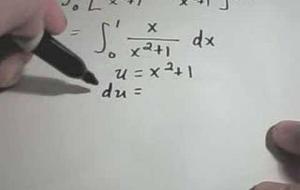 = ∫₀¹ x/(x²+1) dx
u = x²+1
du =